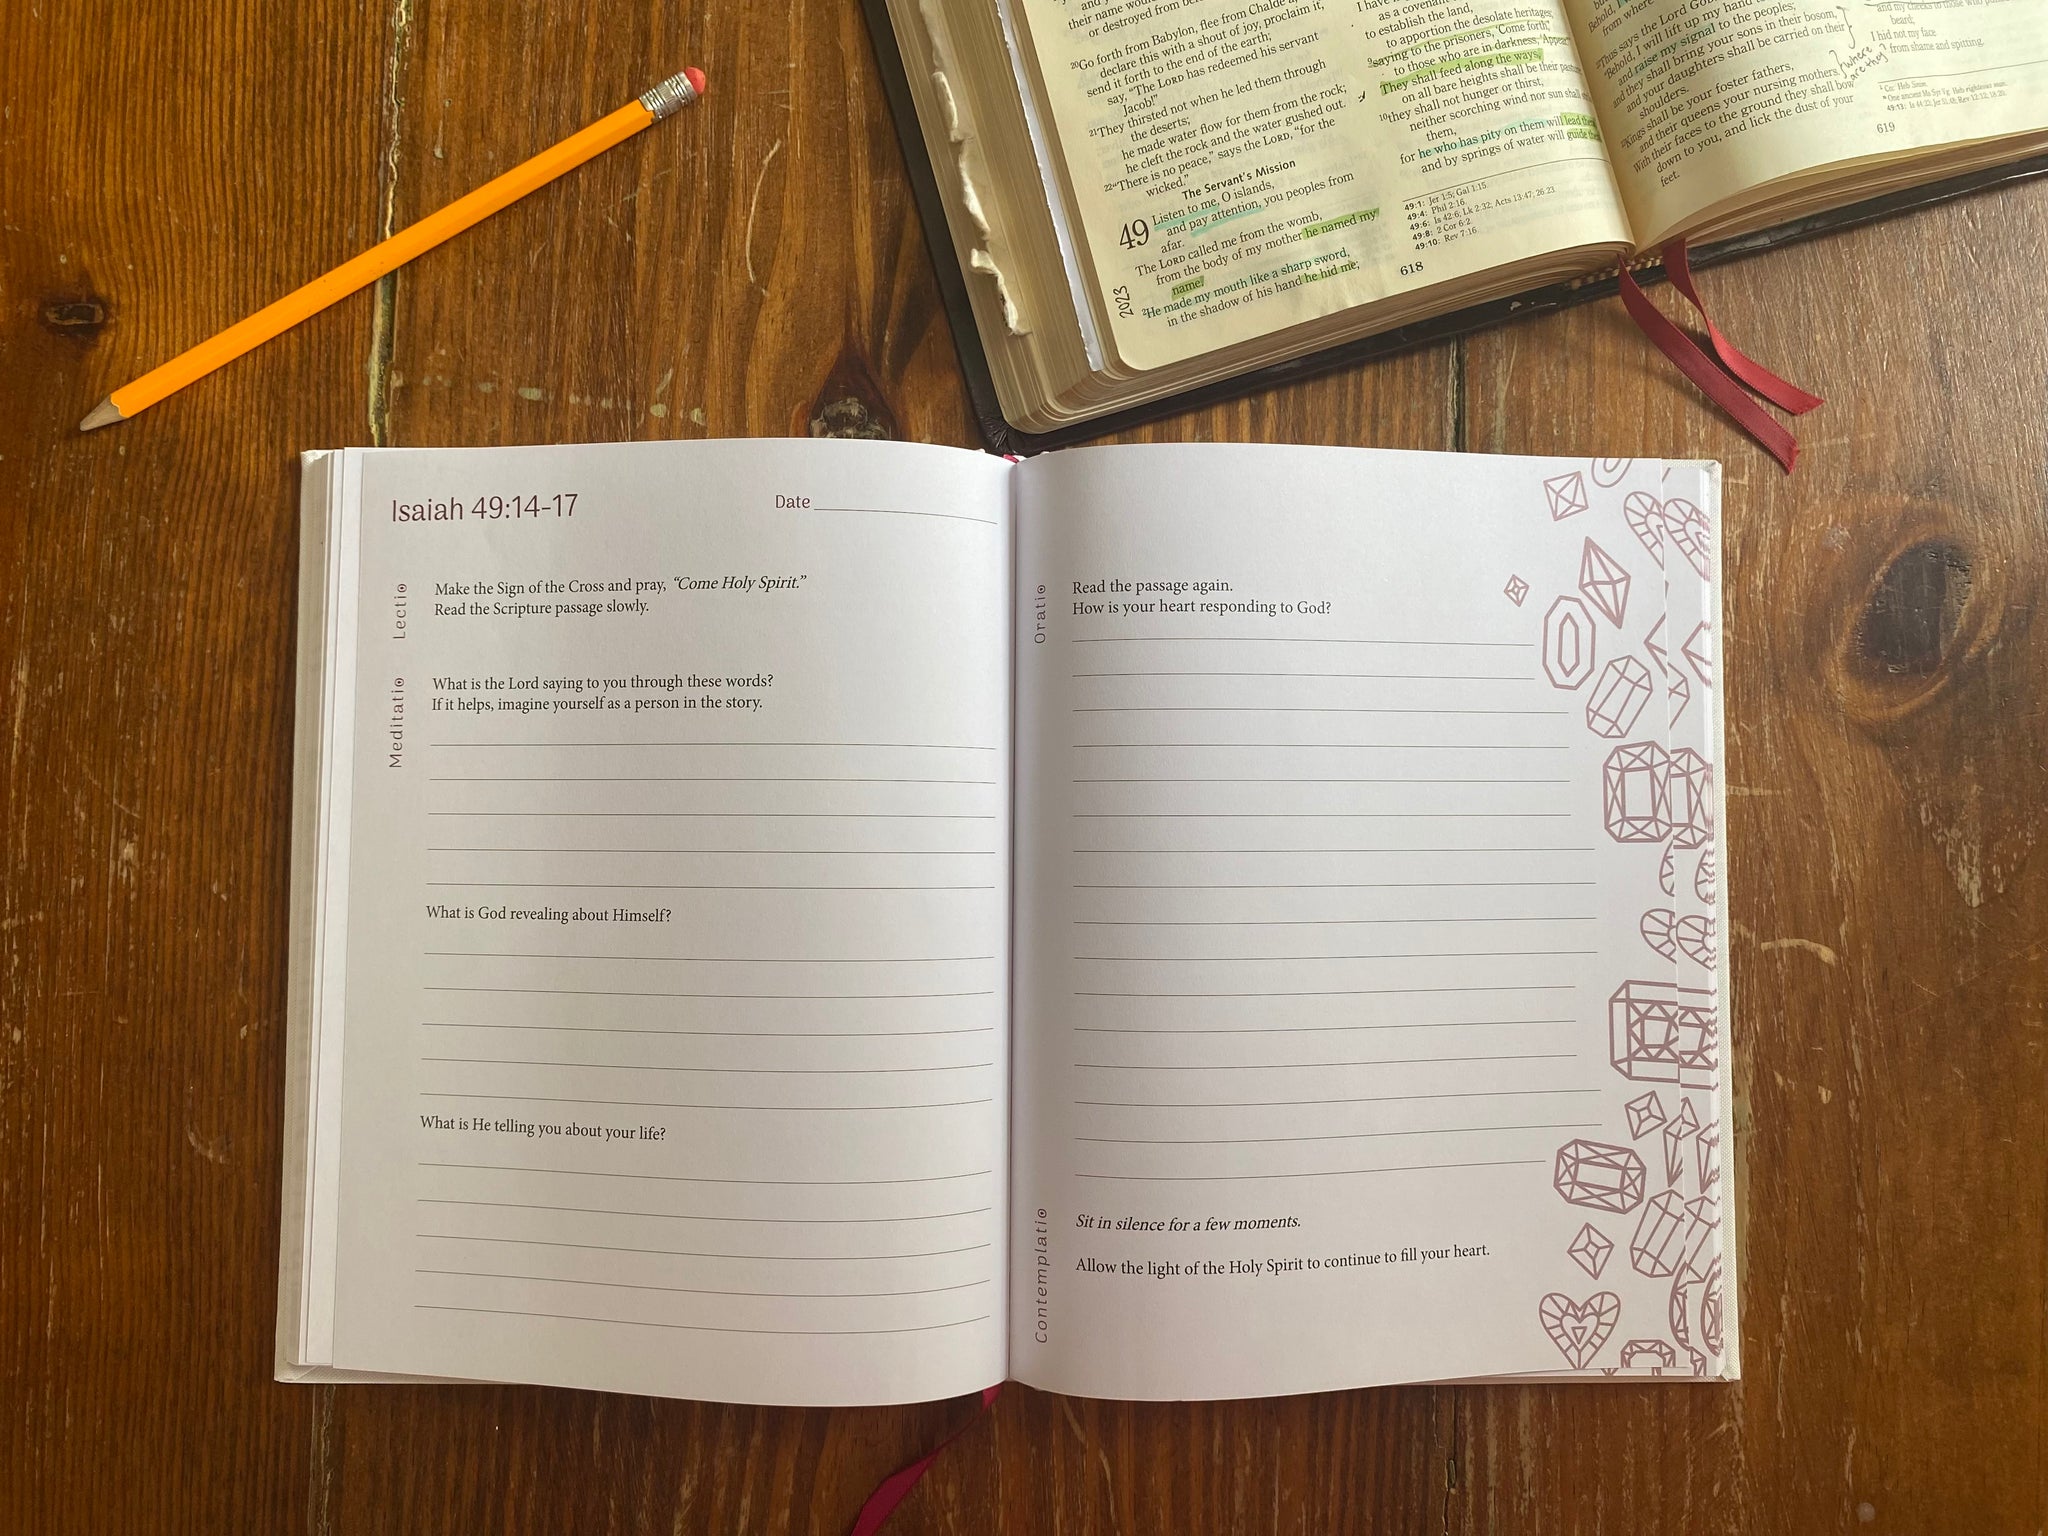 their name would
or destroyed from
²⁰Go forth from Babylon, flee from Chaldea,
declare this with a shout of joy, proclaim it,
send it forth to the end of the earth;
say, "The LORD has redeemed his servant
Jacob!"
²¹They thirsted not when he led them through
the deserts;
he made water flow for them from the rock;
he cleft the rock and the water gushed out.
²²"There is no peace," says the LORD, "for the
wicked."
The Servant's Mission
49 Listen to me, O islands,
and pay attention, you peoples from
afar.
The LORD called me from the womb,
from the body of my mother he named my
name.
²He made my mouth like a sharp sword,
in the shadow of his hand he hid me;
2023
I have
as a covenant
to establish the land,
to apportion the desolate heritages;
⁹saying to the prisoners, 'Come forth,'
to those who are in darkness, 'Appear.'
They shall feed along the ways,
on all bare heights shall be their
¹⁰they shall not hunger or thirst,
neither scorching wind nor sun shall
them,
for he who has pity on them will lead
and by springs of water will guide
49:1: Jer 1:5; Gal 1:15.
49:4: Phil 2:16.
49:6: Is 42:6; Lk 2:32; Acts 13:47; 26:23
49:8: 2 Cor 6:2.
49:10: Rev 7:16
618
Behold,
from where
²²Thus says the Lord GOD:
"Behold, I will lift up my hand to
and raise my signal to the peoples;
and they shall bring your sons in their bosom,
and your daughters shall be carried on their
shoulders.
²³Kings shall be your foster fathers,
and their queens your nursing mothers.
With their faces to the ground they shall bow
down to you, and lick the dust of your
feet.
where
are they?
and my cheeks to those who
beard;
I hid not my face
from shame and spitting.
619
Isaiah 49:14-17
Date
Lectio
Make the Sign of the Cross and pray, "Come Holy Spirit."
Read the Scripture passage slowly.
Meditatio
What is the Lord saying to you through these words?
If it helps, imagine yourself as a person in the story.
What is God revealing about Himself?
What is He telling you about your life?
Oratio
Read the passage again.
How is your heart responding to God?
Contemplatio
Sit in silence for a few moments.
Allow the light of the Holy Spirit to continue to fill your heart.